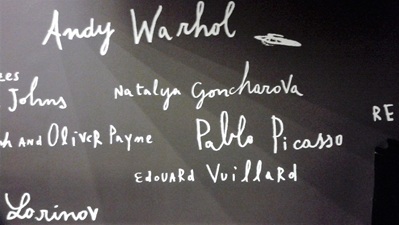 Andy Warhol
ees
Johns
Natalya Goncharova
h and Oliver Payne
Pablo Picasso
RE
Edouard Vuillard
Larinov